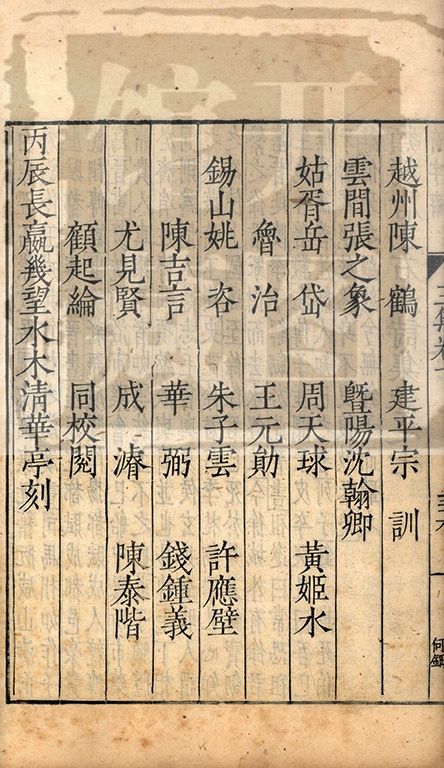 越州陳　鶴　建平宗　訓
雲間張之象　暨陽沈翰卿
姑胥岳　岱　周天球　黃姬水
魯　治　王元勛
錫山姚　咨　朱子雲　許應壁
陳吉言　華　弼　錢鍾義
尤見賢　成　濬　陳泰階
顧起綸　同校閱
丙辰長嬴幾望水木清華亭刻